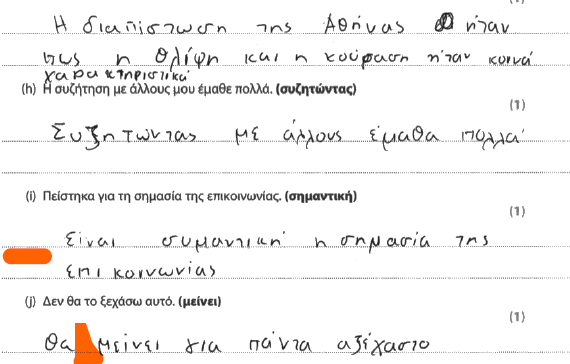 Η διαπίστωση της Αθήνας ήταν
πως η θλίψη και η κούραση ήταν κοινά
χαρακτηριστικά
(h) Η συζήτηση με άλλους μου έμαθε πολλά. (συζητώντας)
(1)
Συζητώντας με άλλους έμαθα πολλά
(i) Πείστηκα για τη σημασία της επικοινωνίας. (σημαντική)
(1)
Είναι συμαντική η σημασία της
επικοινωνίας
(j) Δεν θα το ξεχάσω αυτό. (μείνει)
(1)
Θα μείνει για πάντα αξέχαστο